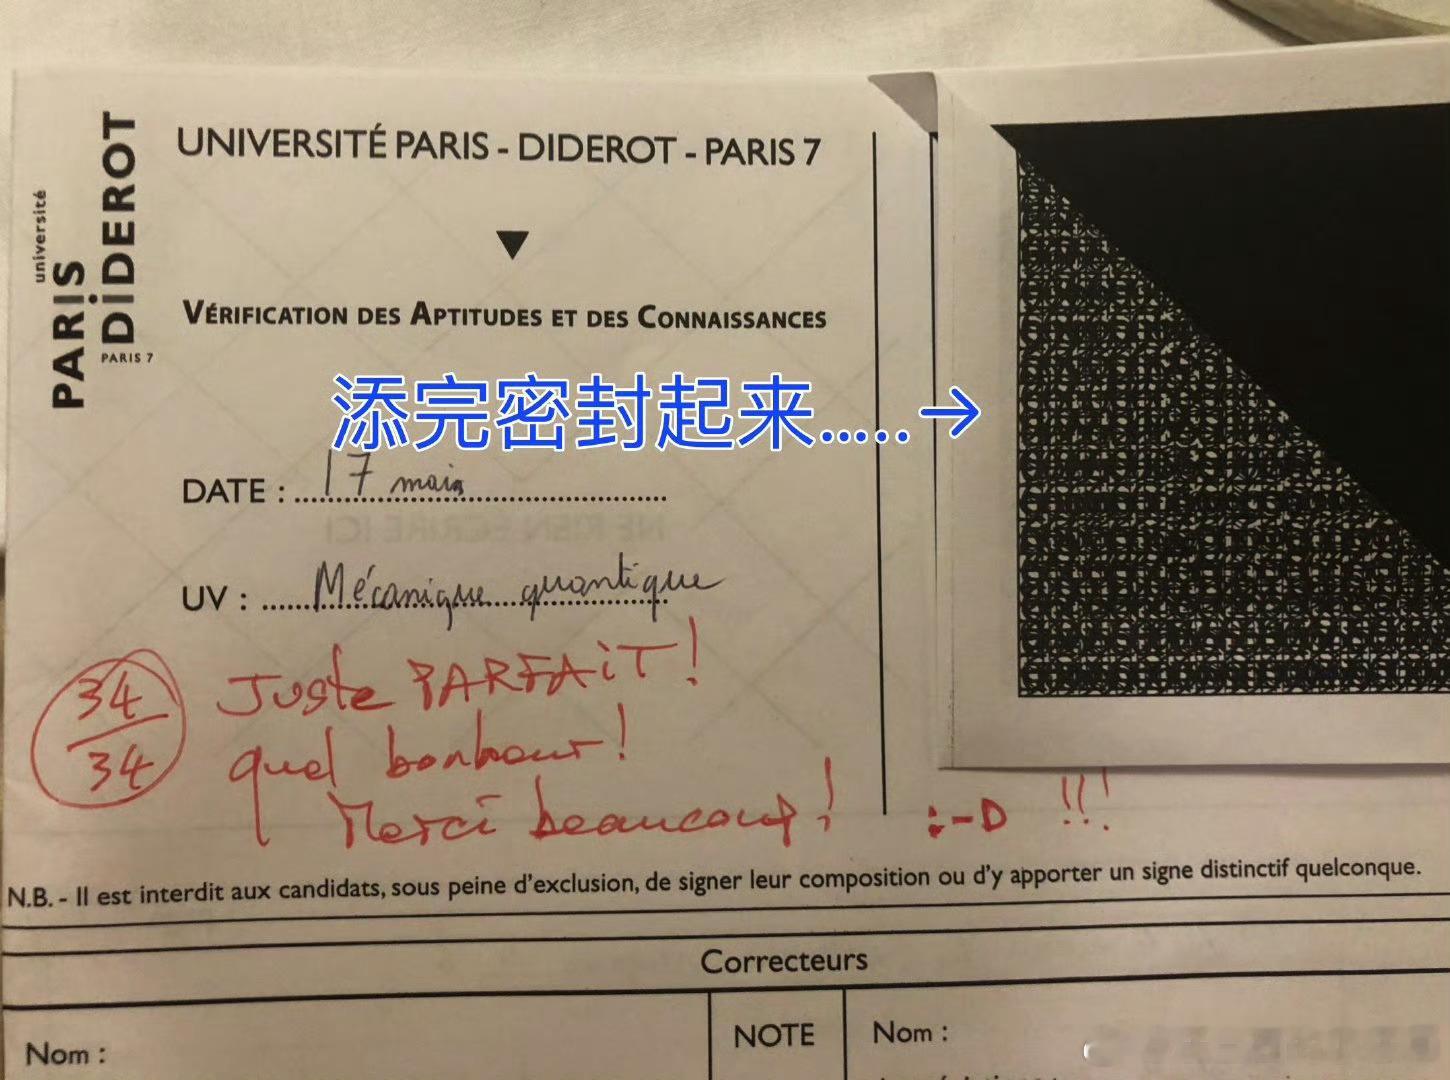 université
PARIS
DiDEROT
PARIS 7
UNIVERSITÉ PARIS - DIDEROT - PARIS 7
VÉRIFICATION DES APTITUDES ET DES CONNAISSANCES
添完密封起来.....→
DATE : 17 mai
NE RIEN ÉCRIRE ICI
UV : Mécanique quantique
34/34
Juste PARFAiT!
quel bonheur!
Merci beaucoup! :-D !!!
N.B. - Il est interdit aux candidats, sous peine d'exclusion, de signer leur composition ou d'y apporter un signe distinctif quelconque.
Correcteurs
Nom :
NOTE
Nom :